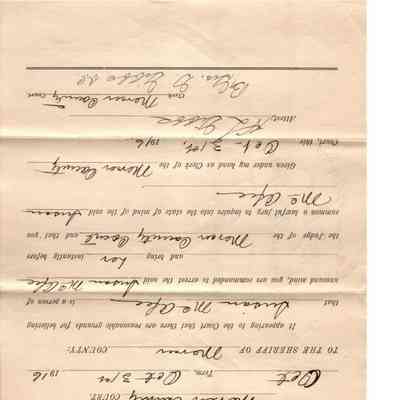 Mercer County COURT.
Oct Term, Oct 31st 1916
TO THE SHERIFF OF Mercer COUNTY:
It appearing to the Court that there are reasonable grounds for believing
that Susan McAfee is a person of
unsound mind, you are commanded to arrest the said Susan McAfee
and bring her instantly before
the Judge of the Mercer County Court and that you
summon a lawful jury to inquire into the state of mind of the said Susan
McAfee
Given under my hand as Clerk of the Mercer County
Court, this Oct 31st, 1916.
Attest,
Clerk Mercer County Court
By D.C.